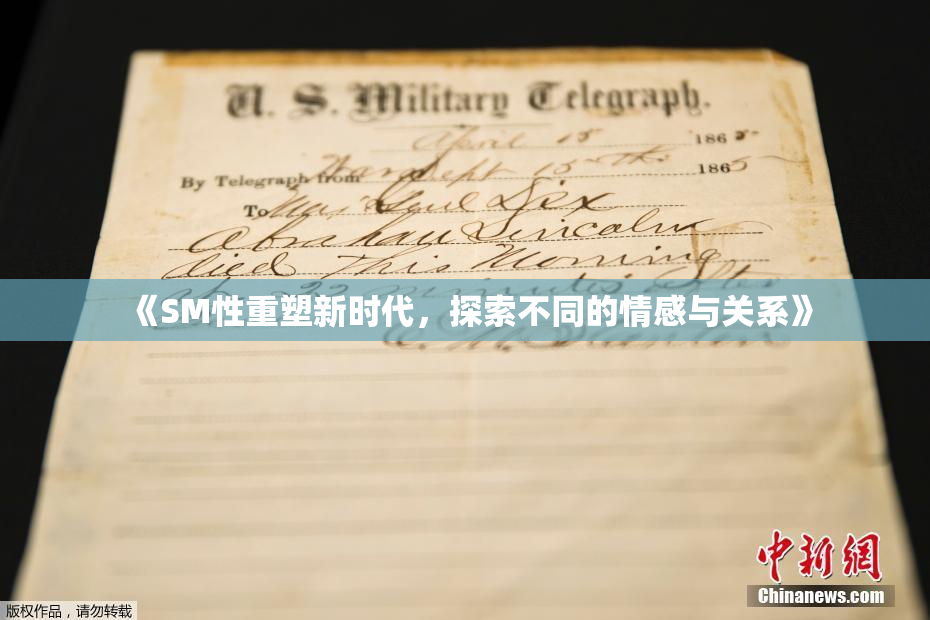 U. S. Military Telegraph.
April 15 1865
By Telegraph from War Dept 15th 1865
To Maj Genl Dix
Abraham Lincoln
died this Morning
22 minutes after
《SM性重塑新时代，探索不同的情感与关系》
E. M. Stanton
中新网
Chinanews.com
版权作品，请勿转载